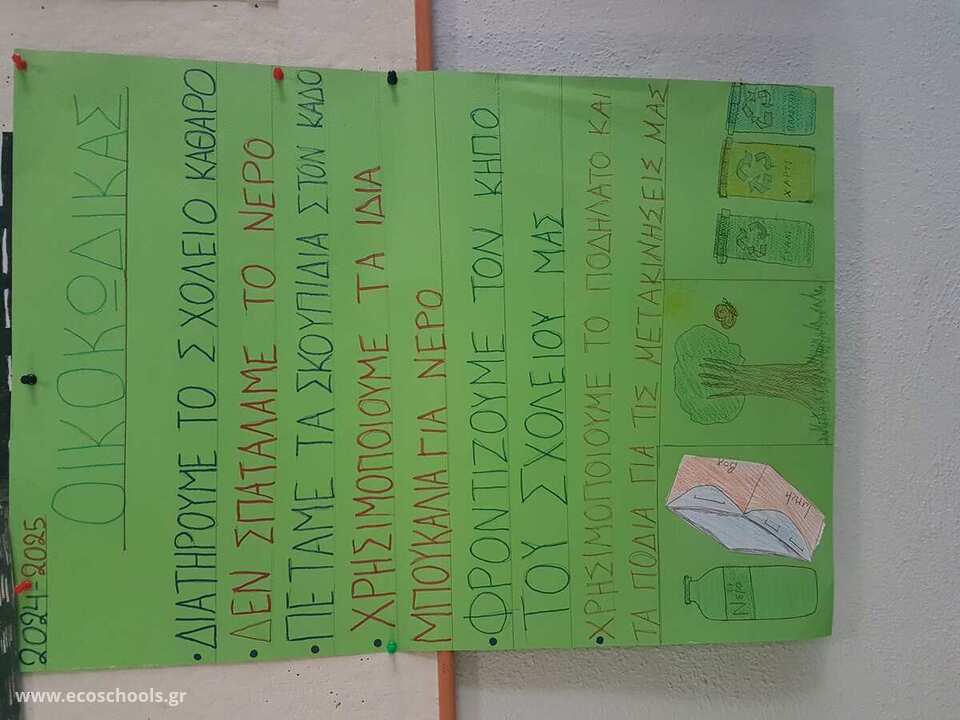 2024-2025
ΟΙΚΟΚΩΔΙΚΑΣ
• ΔΙΑΤΗΡΟΥΜΕ ΤΟ ΣΧΟΛΕΙΟ ΚΑΘΑΡΟ
• ΔΕΝ ΣΠΑΤΑΛΑΜΕ ΤΟ ΝΕΡΟ
• ΠΕΤΑΜΕ ΤΑ ΣΚΟΥΠΙΔΙΑ ΣΤΟΝ ΚΑΔΟ
• ΧΡΗΣΙΜΟΠΟΙΟΥΜΕ ΤΑ ΙΔΙΑ
ΜΠΟΥΚΑΛΙΑ ΓΙΑ ΝΕΡΟ
• ΦΡΟΝΤΙΖΟΥΜΕ ΤΟΝ ΚΗΠΟ
ΤΟΥ ΣΧΟΛΕΙΟΥ ΜΑΣ
• ΧΡΗΣΙΜΟΠΟΙΟΥΜΕ ΤΟ ΠΟΔΗΛΑΤΟ ΚΑΙ
ΤΑ ΠΟΔΙΑ ΓΙΑ ΤΙΣ ΜΕΤΑΚΙΝΗΣΕΙΣ ΜΑΣ
Νερο
Lunch
Box
ΓΥΑΛΙ
ΧΑΡΤΙ
www.ecoschools.gr